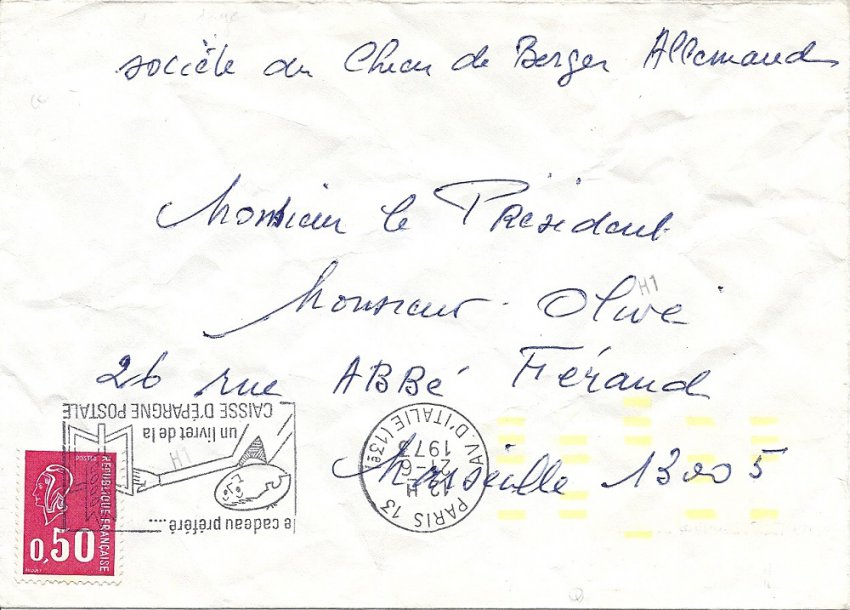 société du Chien de Berger Allemand
Monsieur le Président
Monsieur Olive
H1
26 rue ABBé Féraud
Marseille 13005
CAISSE D'ÉPARGNE POSTALE
un livret de la
le cadeau préféré ....
H1
PARIS 13
AV. D'ITALIE (13e)
12 H
1973
POSTES
REPUBLIQUE FRANÇAISE
0,50